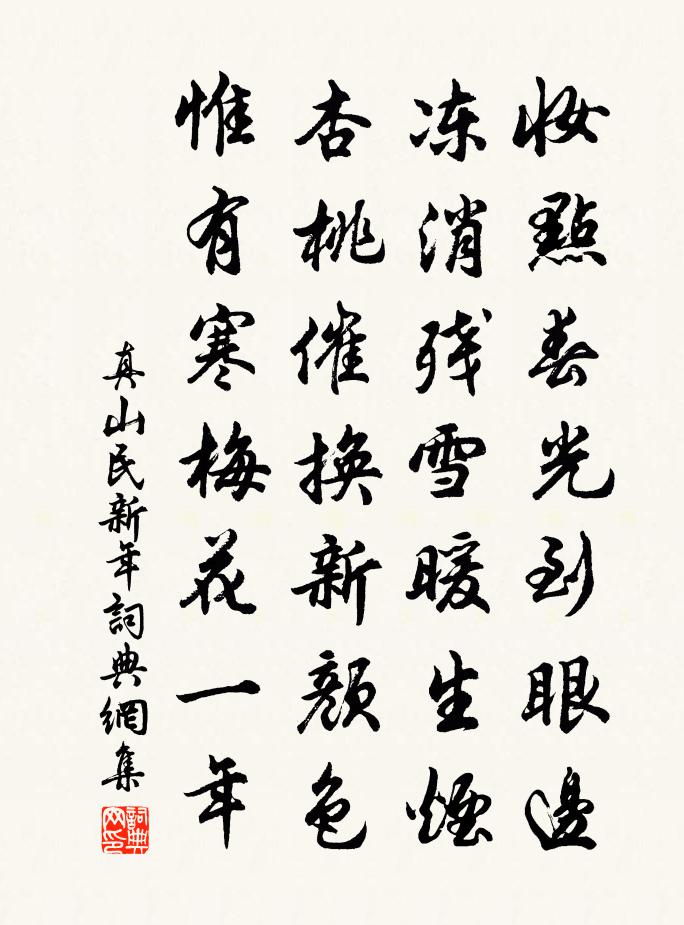 妝點春光到眼邊
凍消殘雪暖生煙
杏桃催換新顏色
惟有寒梅花一年
真山民新年詞典網集
詞典網印